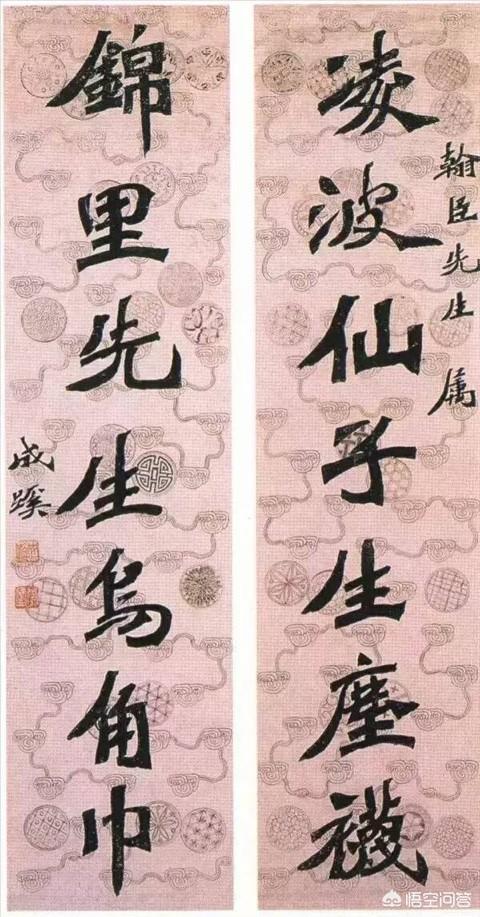 翰臣先生属
凌波仙子生塵襪
錦里先生烏角巾
成蹊
悟空问答